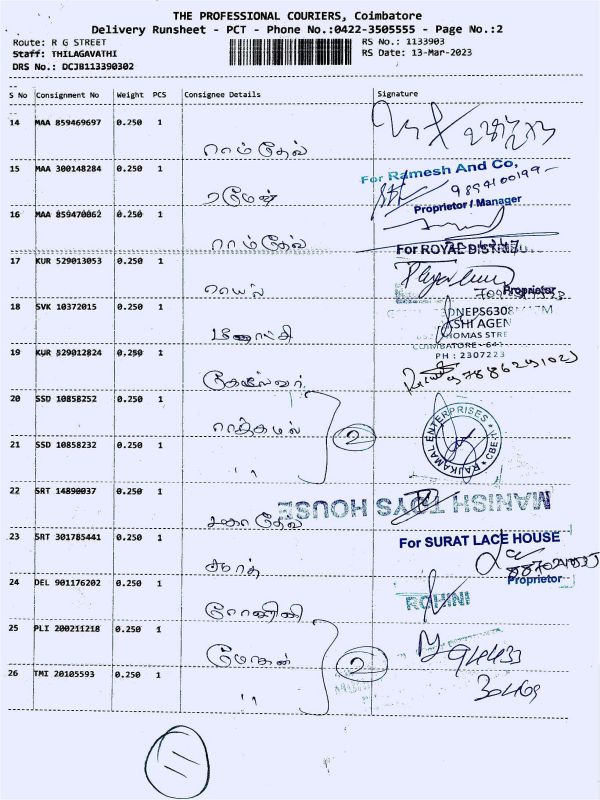 THE PROFESSIONAL COURIERS, Coimbatore
Delivery Runsheet - PCT - Phone No.:0422-3505555 - Page No.:2
Route: R G STREET
RS No.: 1133903
Staff: THILAGAVATHI
RS Date: 13-Mar-2023
DRS No.: DCJB113390302
S No Consignment No Weight PCS Consignee Details Signature
14 MAA 859469697 0.250 1
ராம்தேவ்
15 MAA 300148284 0.250 1
For Ramesh And Co,
ரமேன்
Proprietor / Manager
16 MAA 859470062 0.250 1
ராம்தேவ்
For ROYAL DISTRIBU
17 KUR 529013053 0.250 1
ராயல்
Proprietor
18 SVK 10372015 0.250 1
மீனாட்சி
SHI AGEN
HOMAS STRE
COIMBATORE - 641
PH : 2307223
19 KUR 529012824 0.250 1
20 SSD 10858252 0.250 1
ராஜ்கமல்
2
RAJKAMAL ENTERPRISES CBE
21 SSD 10858232 0.250 1
"
22 SRT 14890037 0.250 1
MANISH TOYS HOUSE
சகாதேவ்
23 SRT 301785441 0.250 1
For SURAT LACE HOUSE
சூரத்
Proprietor
24 DEL 901176202 0.250 1
ROHINI
ரோகினி
25 PLI 200211218 0.250 1
மோகன்
2
26 TMI 20105593 0.250 1
"